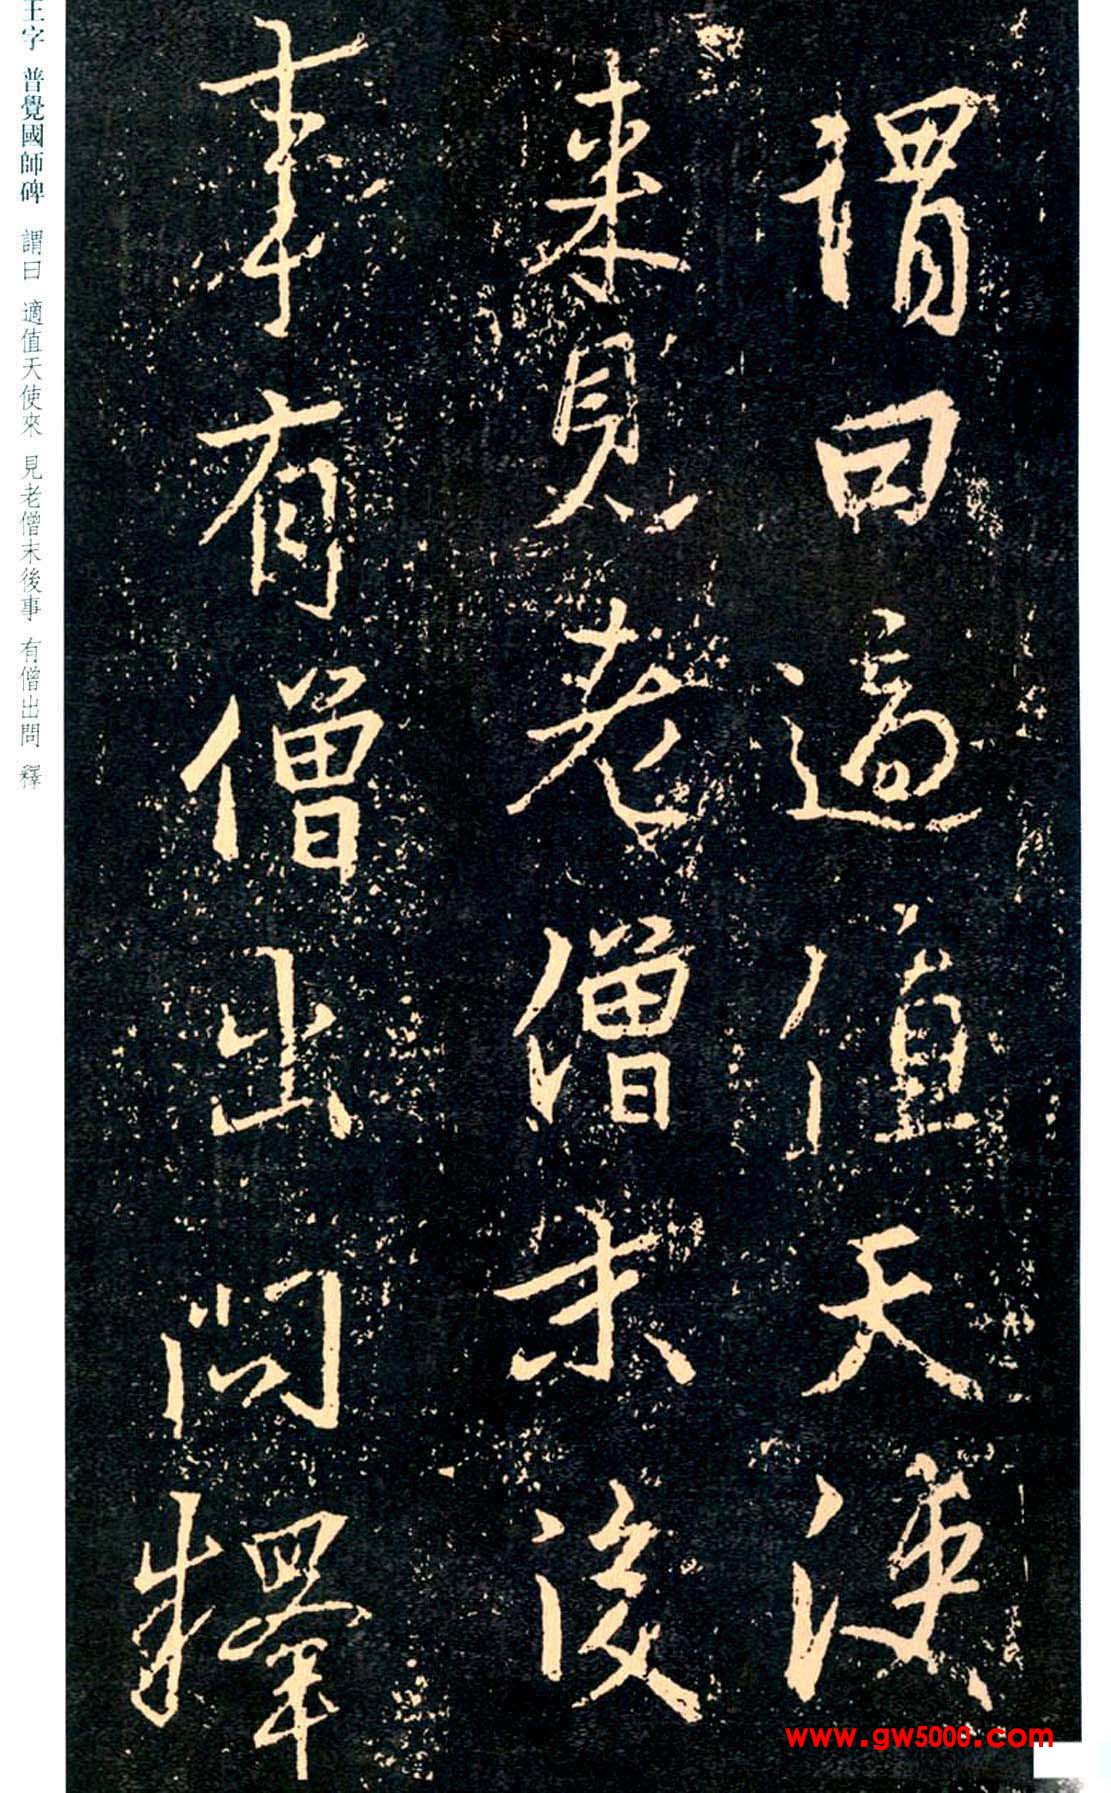 謂曰適值天使
來見老僧末後
事有僧出問釋
王字 普覺國師碑 謂曰 適值天使來 見老僧末後事 有僧出問 釋
www.gw5000.com